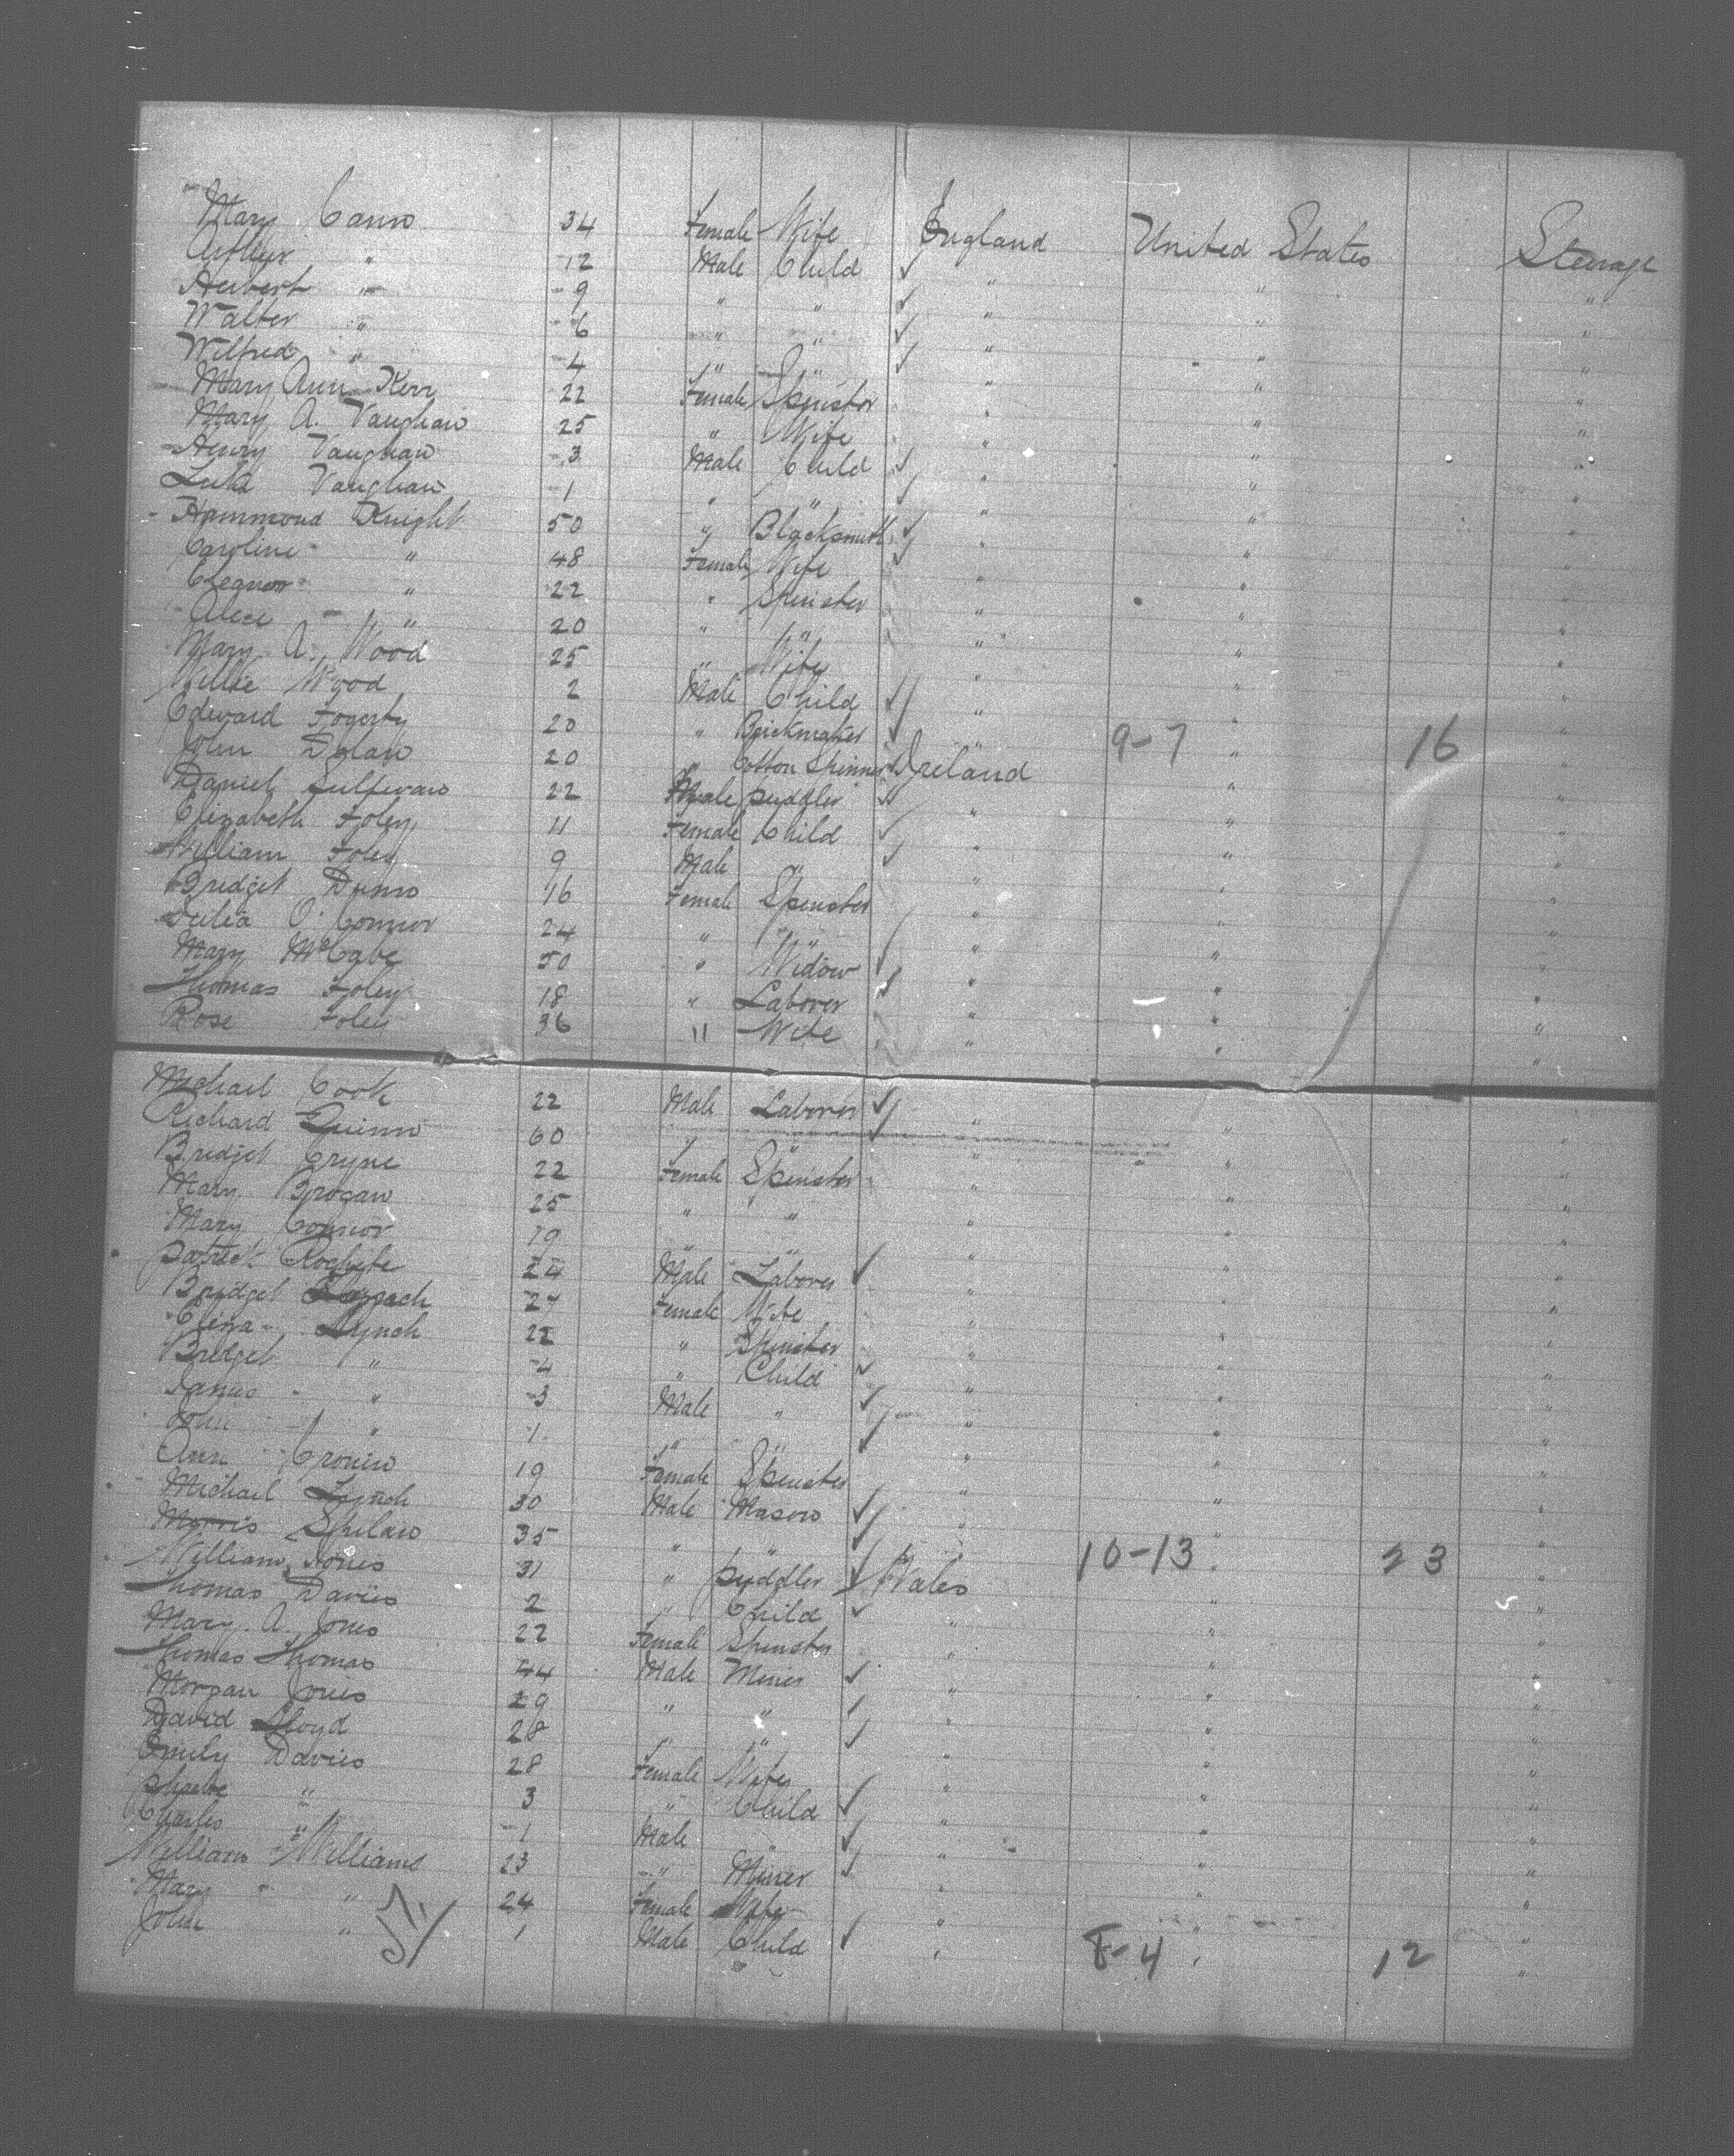 Mary Cann 34 Female Wife England United States Steerage
Arthur " 12 Male Child " " "
Herbert " 9 " " " " "
Walter " 6 " " " " "
Wilfred " 4 " " " " "
Mary Ann Kerr 22 Female Spinster " " "
Mary A. Vaughan 25 " Wife " " "
Henry Vaughan 3 Male Child " " "
Vaughan 1 " " " " "
Hammond Knight 50 " Blacksmith " " "
Caroline " 48 Female Wife " " "
Eleanor " 22 " Spinster " " "
Alice " 20 " " " " "
Mary A. Wood 25 " Wife " " "
Willie Wood 2 Male Child " " "
Edward Fogerty 20 " Brickmaker " 9-7 " 16 "
John Dolan 20 " Cotton Spinner Ireland " "
Daniel Sullivan 22 Male puddler " " "
Elizabeth Foley 11 Female Child " " "
William Foley 9 Male " " " "
Bridget Dunn 16 Female Spinster " " "
Julia O'Connor 24 " " " " "
Mary McCabe 50 " Widow " " "
Thomas Foley 18 " Laborer " " "
Rose Foley 36 " Wife " " "
Michael Cook 22 Male Laborer " " "
Richard Quinn 60 " " " " "
Bridget Cryne 22 Female Spinster " " "
Mary Brogan 25 " " " " "
Mary Connor 19 " " " " "
Patrick 24 Male Laborer " " "
Bridget 27 Female Wife " " "
Lynch 22 " Spinster " " "
Bridget " 4 " Child " " "
James " 3 Male " " " "
John " 1 " " " " "
Ann Cronin 19 Female Spinster " " "
Michael Lynch 30 Male Mason " " "
Morris 35 " " " 10-13 " 23 "
William Jones 31 " puddler Wales " "
Thomas Davies 2 " Child " " "
Mary A. Jones 22 Female Spinster " " "
Thomas Thomas 44 Male Miner " " "
Morgan Jones 29 " " " " "
David Lloyd 28 " " " " "
Emily Davies 28 Female Wife " " "
Phoebe " 3 " Child " " "
Charles " 1 Male " " " "
William Williams 23 " Miner " " "
Mary " 24 Female Wife " " "
John " 1 Male Child " 8-4 " 12 "
51